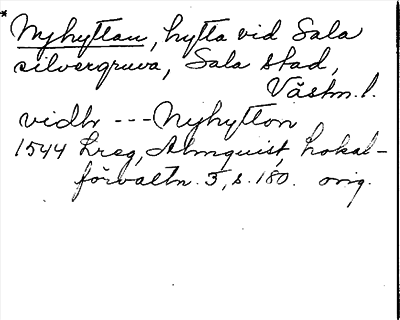 * Nyhyttan, hytta vid Sala
silvergruva, Sala stad,
Västm.l.
vidh --- Nyhytton
1544 Lreg, Almquist, Lokal-
förvaltn. 5, s. 180. orig.